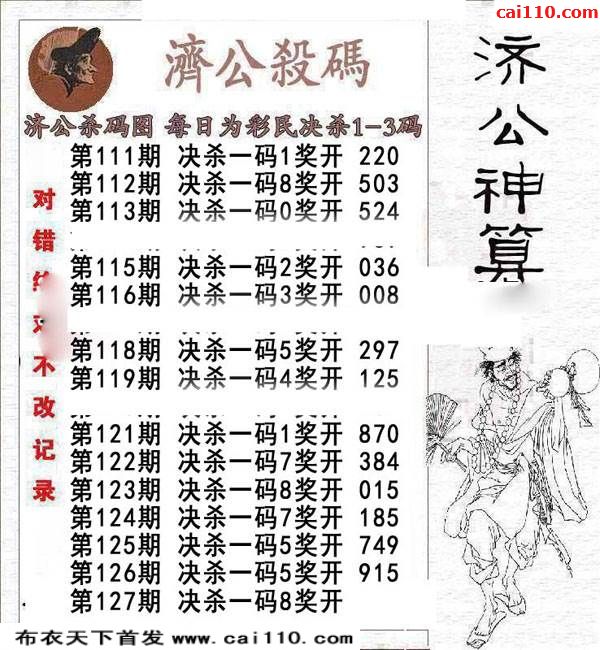 cai110.com
濟公殺碼
济公神算
济公杀码图 每日为彩民决杀1-3码
对错
不改记录
第111期 决杀一码1奖开 220
第112期 决杀一码8奖开 503
第113期 决杀一码0奖开 524
第115期 决杀一码2奖开 036
第116期 决杀一码3奖开 008
第118期 决杀一码5奖开 297
第119期 决杀一码4奖开 125
第121期 决杀一码1奖开 870
第122期 决杀一码7奖开 384
第123期 决杀一码8奖开 015
第124期 决杀一码7奖开 185
第125期 决杀一码5奖开 749
第126期 决杀一码5奖开 915
第127期 决杀一码8奖开
布衣天下首发 www.cai110.com